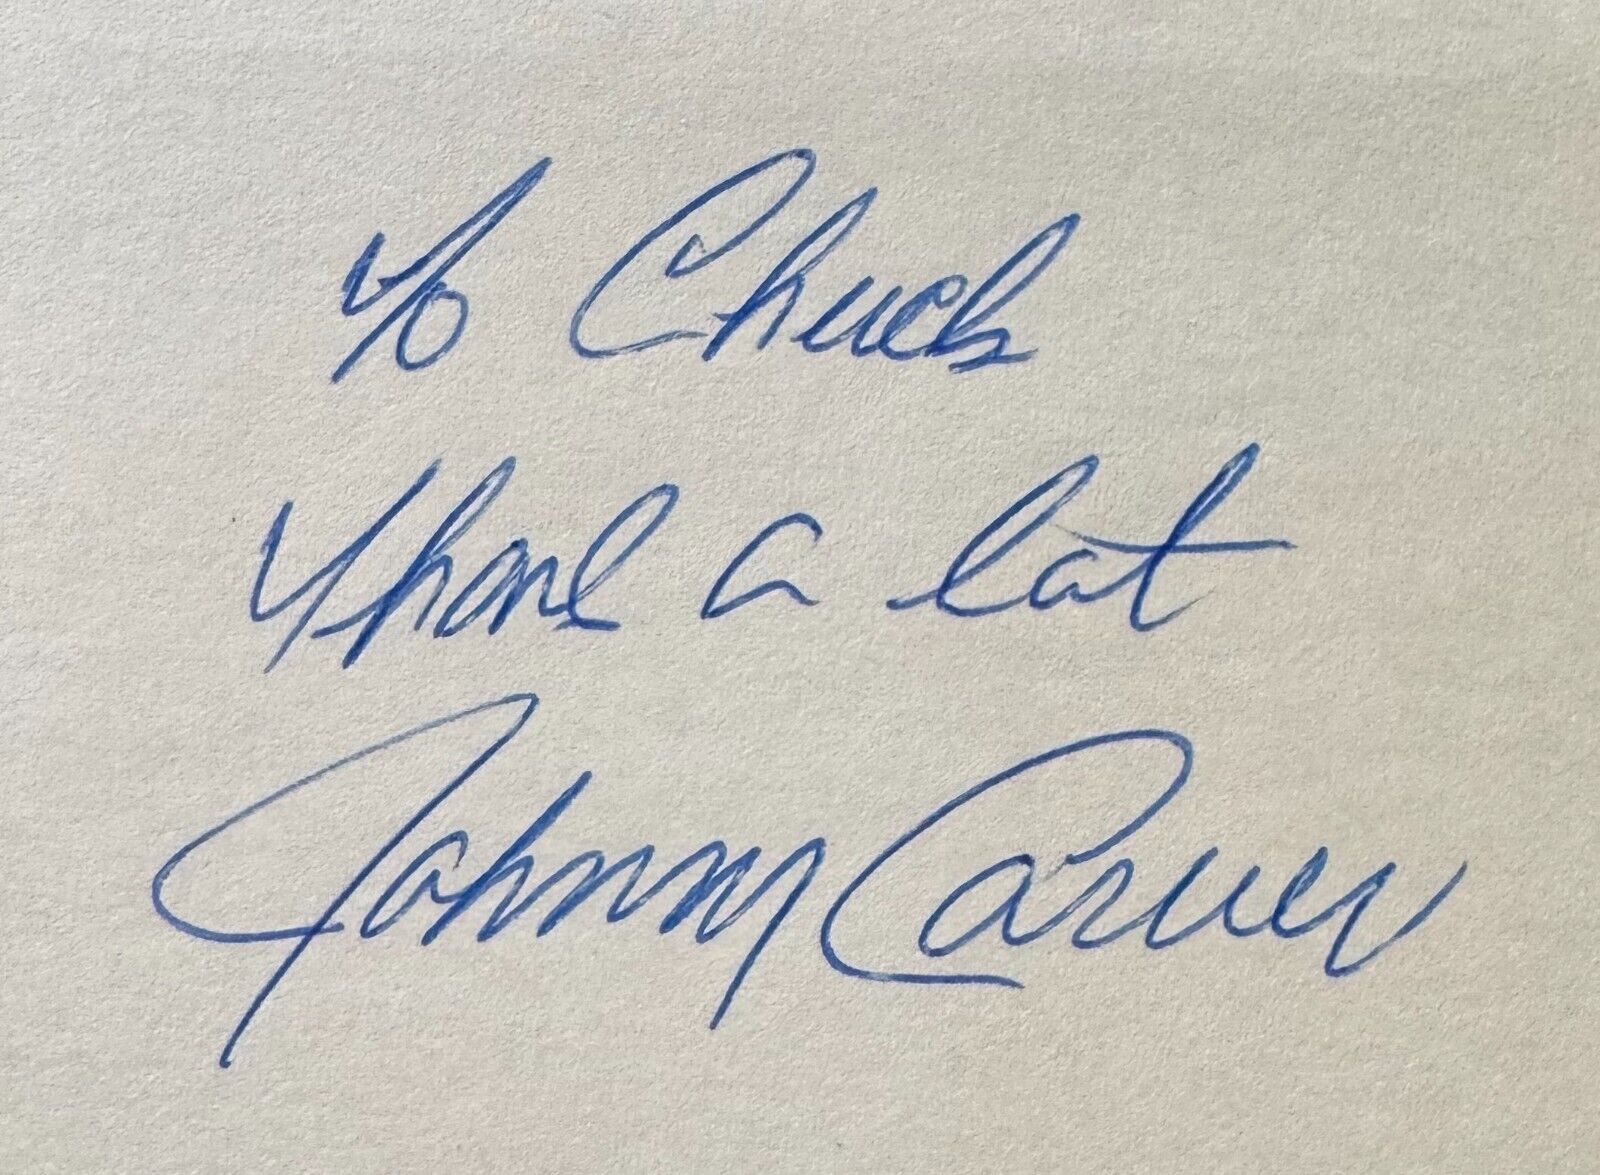 To Chuck
Thank a lot
Johnny Carver